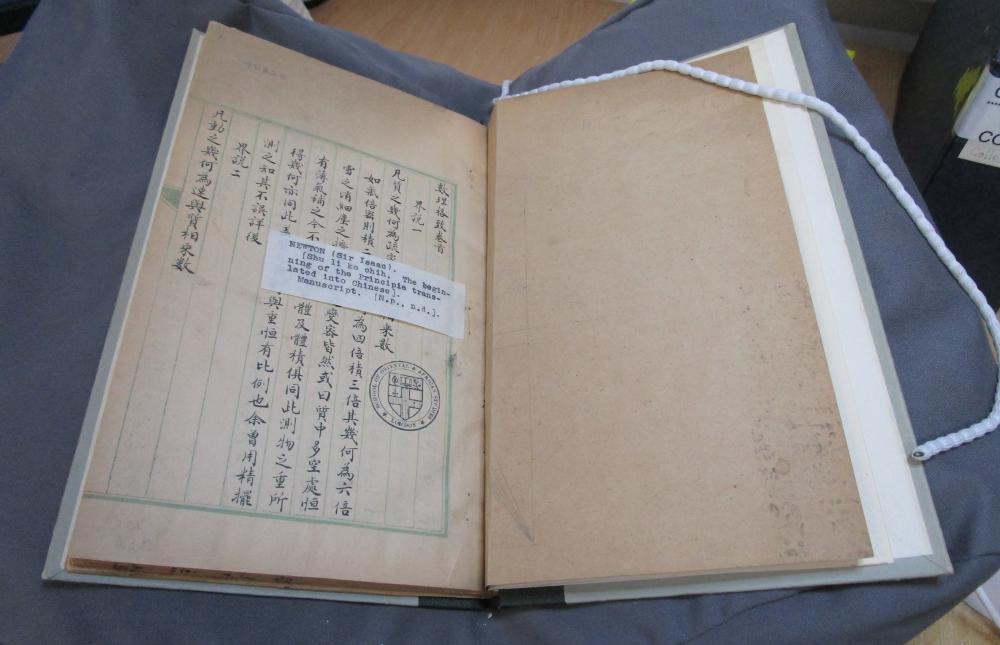 數理格致卷首
界說一
凡質之幾何為疏 乘數
如氣倍密則積二 為四倍積三倍其幾何為六倍
雪之消細塵之 變容皆然或曰質中多空處恒
有薄氣補之今不 體及體積俱同此測物之重所
得幾何亦同此 與重恒有比例也余曾用精擺
測之知其不誤詳後
界說二
凡動之幾何為速與質相乘數
NEWTON (Sir Isaac).
[Shu li ko chih. The begin-
ning of the Principia trans-
lated into Chinese].
Manuscript. [N.p., n.d.].
SCHOOL OF ORIENTAL & AFRICAN STUDIES
LONDON